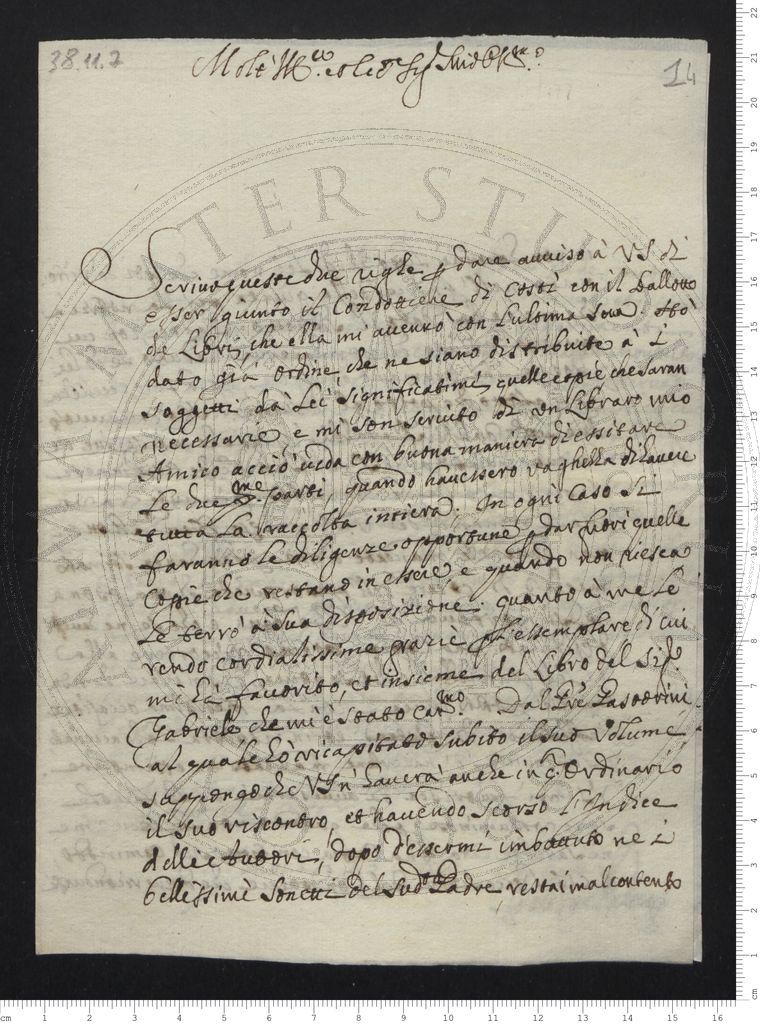 38.11.2
14
Scrivo queste due righe p dare avviso à VS di
esser giunto il Condottiere di costì con il Ballotto
de Libri, che ella mi avvenrò con l'ultima sua. Hò
dato già ordine, che ne siano distribuite à i
soggetti dà Lei significatimi quelle copie che saran
necessarie, e mi son servito di un Libraro mio
Amico acciò veda con buona maniera di essitare
Le due pme parti, quando havessero vaghezza di havere
tutta La raccolta intiera. In ogni caso si
faranno le diligenze opportune p dar fuori quelle
copie che restano in essere, e quando non riesca
Le terrò à sua disposizione. quanto à me Le
rendo cordialissime grazie p l'essemplare di cui
mi hà favorito, et insieme del Libro del Sigr
Gabriele che mi è stato carmo. Dal Pre Pastorini
al quale hò ricapitato subito il suo volume
suppongo che VS n'haverà anche in q. ordinario
il suo riscontro, et havendo scorso l'Indice
delli Autori, dopo d'essermi imbattuto ne i
bellissimi sonetti del sud.to Padre, restai mal contento